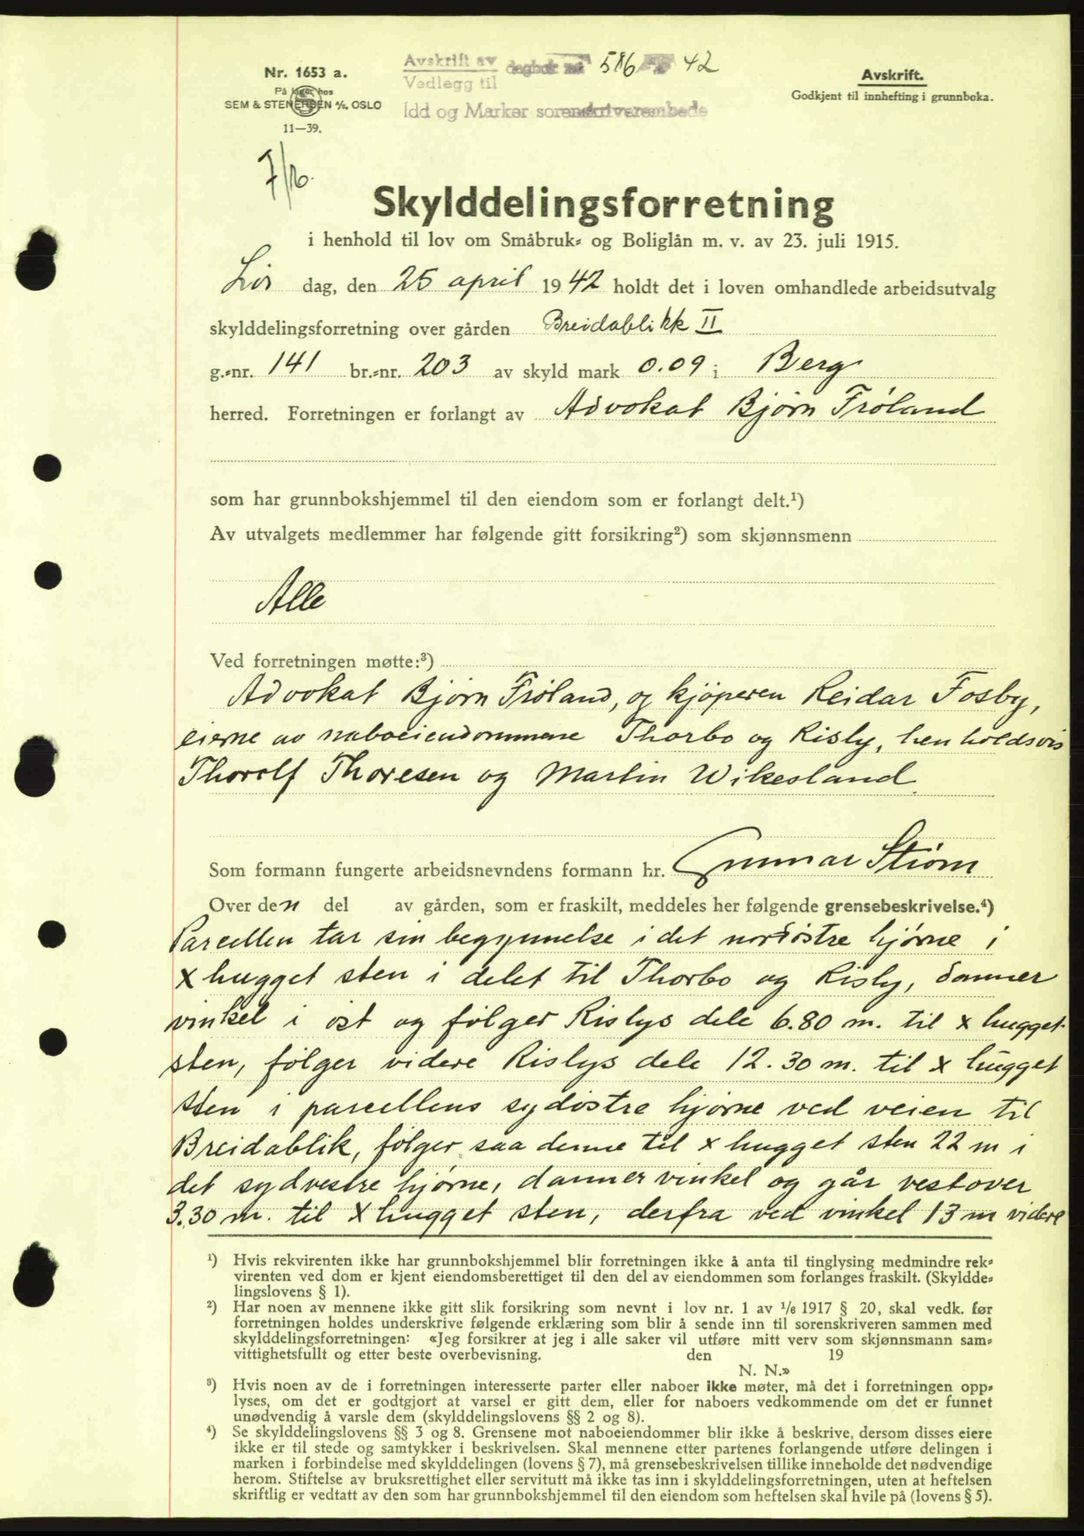 Nr. 1653 a.
På lager hos
SEM & STENERSEN A/S, OSLO
11—39.
Avskrift av dagbok nr. 586 42
Vedlegg til
Idd og Marker sorenskriverembede
Avskrift.
Godkjent til innhefting i grunnboka.
Skylddelingsforretning
i henhold til lov om Småbruk- og Boliglån m. v. av 23. juli 1915.
Lør dag, den 25 april 1942 holdt det i loven omhandlede arbeidsutvalg
skylddelingsforretning over gården Breidablikk II
g.-nr. 141 br.-nr. 203 av skyld mark 0.09 i Berg
herred. Forretningen er forlangt av Advokat Bjørn Frøland
som har grunnbokshjemmel til den eiendom som er forlangt delt.¹)
Av utvalgets medlemmer har følgende gitt forsikring²) som skjønnsmenn
Alle
Ved forretningen møtte:³)
Advokat Bjørn Frøland, og kjøperen Reidar Fosby,
eierne av naboeiendommene Thorbo og Risly, henholdsvis
Thorolf Thoresen og Martin Wikesland.
Som formann fungerte arbeidsnevndens formann hr. Gunnar Strøm
Over den del av gården, som er fraskilt, meddeles her følgende grensebeskrivelse.⁴)
Parcellen tar sin begynnelse i det nordøstre hjørne i
x hugget sten i delet til Thorbo og Risly, danner
vinkel i øst og følger Rislys dele 6.80 m. til x hugget
sten, følger videre Rislys dele 12.30 m. til x hugget
sten i parcellens sydøstre hjørne ved veien til
Breidablik, følger saa denne til x hugget sten 22 m i
det sydvestre hjørne, danner vinkel og går vestover
3.30 m. til x hugget sten, derfra ved vinkel 13 m videre
¹) Hvis rekvirenten ikke har grunnbokshjemmel blir forretningen ikke å anta til tinglysing medmindre rek-
virenten ved dom er kjent eiendomsberettiget til den del av eiendommen som forlanges fraskilt. (Skyldde-
lingslovens § 1).
²) Har noen av mennene ikke gitt slik forsikring som nevnt i lov nr. 1 av 1/6 1917 § 20, skal vedk. før
forretningen holdes underskrive følgende erklæring som blir å sende inn til sorenskriveren sammen med
skylddelingsforretningen: «Jeg forsikrer at jeg i alle saker vil utføre mitt verv som skjønnsmann sam-
vittighetsfullt og etter beste overbevisning. den 19
N. N.»
³) Hvis noen av de i forretningen interesserte parter eller naboer ikke møter, må det i forretningen opp-
lyses, om det er godtgjort at varsel er gitt dem, eller for naboers vedkommende om det er funnet
unødvendig å varsle dem (skylddelingslovens §§ 2 og 8).
⁴) Se skylddelingslovens §§ 3 og 8. Grensene mot naboeiendommer blir ikke å beskrive, dersom disses eiere
ikke er til stede og samtykker i beskrivelsen. Skal mennene etter partenes forlangende utføre delingen i
marken i forbindelse med skylddelingen (lovens § 7), må grensebeskrivelsen tillike inneholde det nødvendige
herom. Stiftelse av bruksrettighet eller servitutt må ikke tas inn i skylddelingsforretningen, uten at heftelsen
skriftlig er vedtatt av den som har grunnbokshjemmel til den eiendom som heftelsen skal hvile på (lovens § 5).